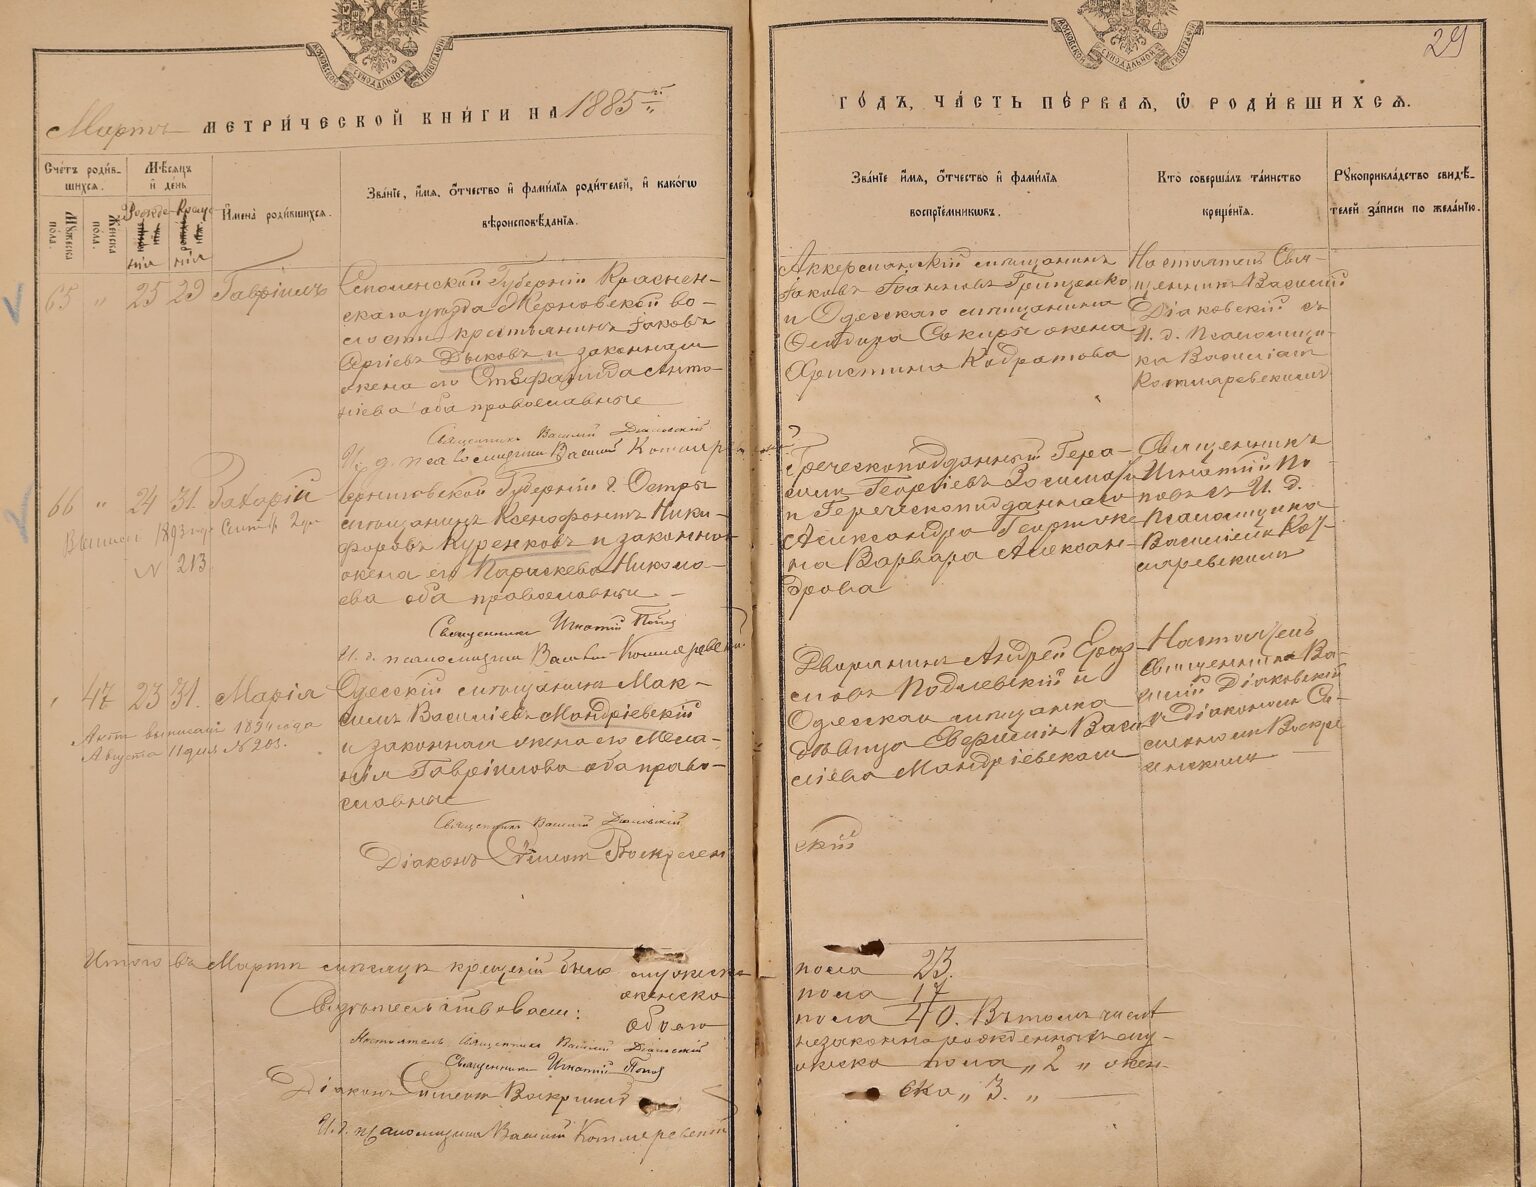 29
Мартъ МЕТРИ́ЧЕСКОЙ КНИ́ГИ НА 1885й
ГО́ДЪ, ЧА́СТЬ ПЕ́РВАЯ, Ѿ РОДИ́ВШИХСЯ.
Сче́тъ роди́в-
шихся.
Мѣ́сяцъ
и҆ де́нь
Му́жеска по́ла.
Же́нска по́ла.
Рожде-
нія
Креще-
нія
И҆мена̀ роди́вшихся.
Зва́нїе, и҆́мя, ѻ҆́тчество и҆ фами́лїя роди́телей, и҆ како́гѡ
вѣроисповѣ́данїя.
Зва́нїе и҆́мя, ѻ҆́тчество и҆ фами́лїя
воспрїе́мникѡвъ.
Кто̀ соверша́лъ та́инство
креще́нїя.
Рꙋкоприкла́дство свидѣ́-
телей за́писи по жела́нїю.
65 " 25 29 Гавріилъ
Смоленской Губерніи Краснен-
скаго уѣзда во-
лости крестьянинъ Іаковъ
Сергіевъ Дыковъ и законная
жена его Стефанида Анто-
ніева оба православные
Священникъ Василій Діаковскій
И. д. псаломщика Василій Котляревскій
Аккерманскій мѣщанинъ
Іаковъ Іоанновъ Гриценко
и Одесскаго мѣщанина
жена
Христина Кодратова
Настоятель Свя-
щенникъ Василій
Діаковскій съ
И. д. Псаломщи-
ка Василіемъ
Котляревскимъ
66 " 24 31. Захарій
Выписъ 1893 года Сентяб. 2 дня
N 213
Черниговской Губерніи г. Остры
мѣщанинъ Ксенофонтъ Ники-
форовъ Куренковъ и законная
жена его Параскева Никола-
ева оба православные. -
Священникъ Игнатій Поповъ
И. д. псаломщика Василій Котляревскій
Греческоподданный Гера-
симъ Георгіевъ
и Греческоподданнаго
Александра Георгія же-
на Варвара Алексан-
дрова
Священникъ
Игнатій По-
повъ съ И. д.
Псаломщика
Василіемъ Кот-
ляревскимъ
47 23 31. Марія
Актъ выписанъ 1894 года
Августа 11 дня N 203.
Одесскій мѣщанинъ Мак-
симъ Василіевъ Мандріевскій
и законная жена его Мела-
нія Гавріилова оба право-
славные
Священникъ Василій Діаковскій
Діаконъ Симеонъ Воскресен
скій
Дворянинъ Андрей
Подлевскій и
Одесская мѣщанка
дѣвица Евфимія Васи-
ліева Мандріевская
Настоятель
Священникъ Ва-
силій Діаковскій
и Діакономъ Си-
меономъ Воскре-
сенскимъ
Итого въ Мартѣ мѣсяцѣ крещеній было мужеска
пола 23.
женска
пола 17
Свидѣтельствовали:
обоего
пола 40. Въ томъ числѣ
незаконнорожденныхъ му-
жеска пола „ 2 „ жен-
ска „ 3. „
Настоятель Священникъ Василій Діаковскій
Священникъ Игнатій Поповъ
Діаконъ Симеонъ Воскресенск
И. д. псаломщика Василій Котляревскій